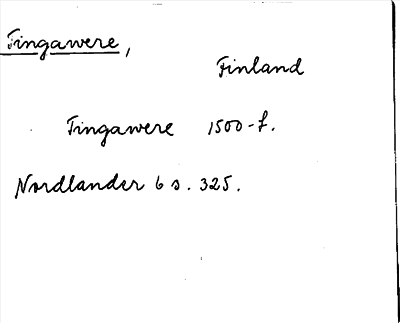 Tingawere,
Finland
Tingawere 1500-t.
Nordlander 6 s. 325.